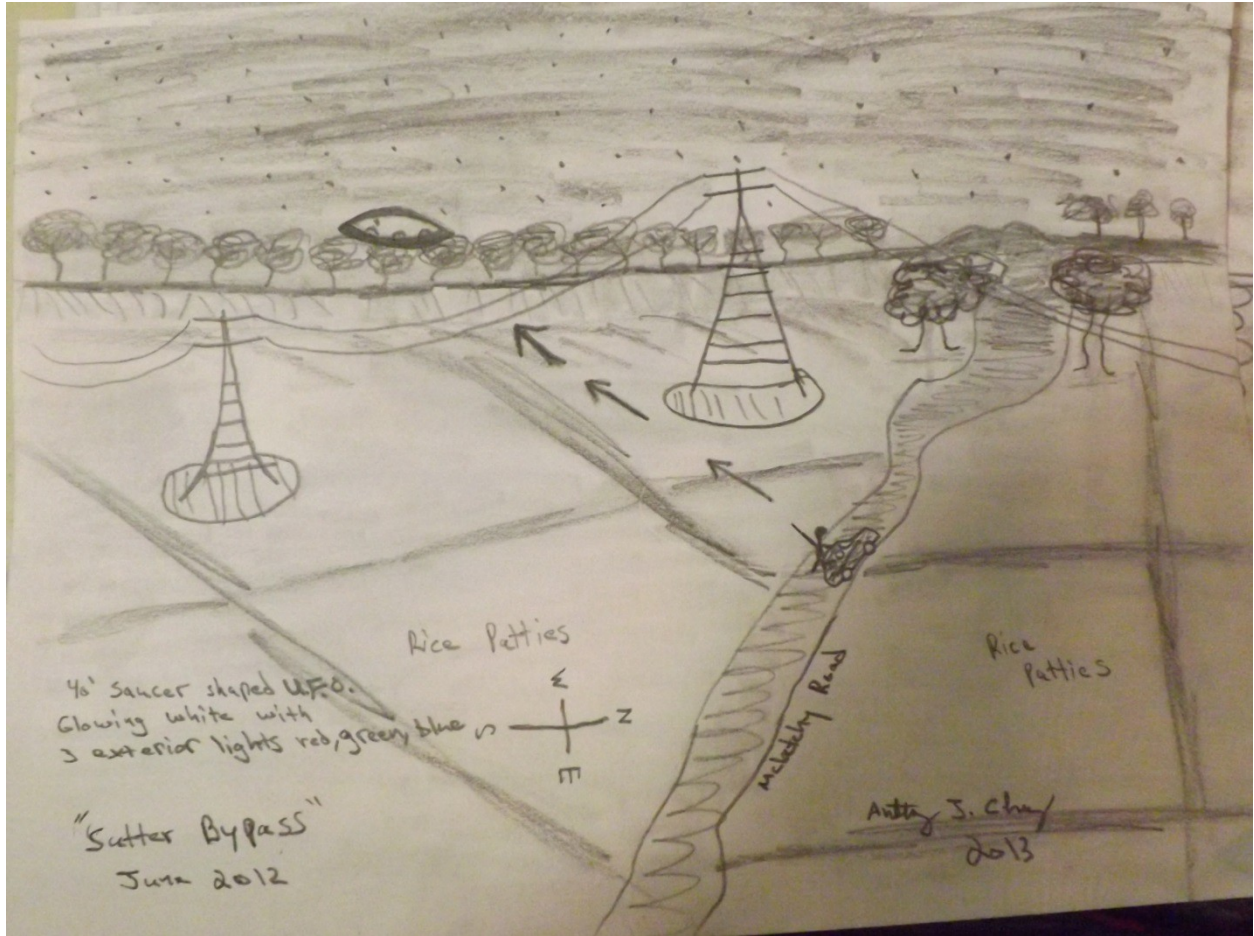 Rice Patties
Rice
Patties
40' saucer shaped U.F.O.
Glowing white with
3 exterior lights red, green, blue
W
S
N
E
Road
"Sutter Bypass"
June 2012
J.
2013